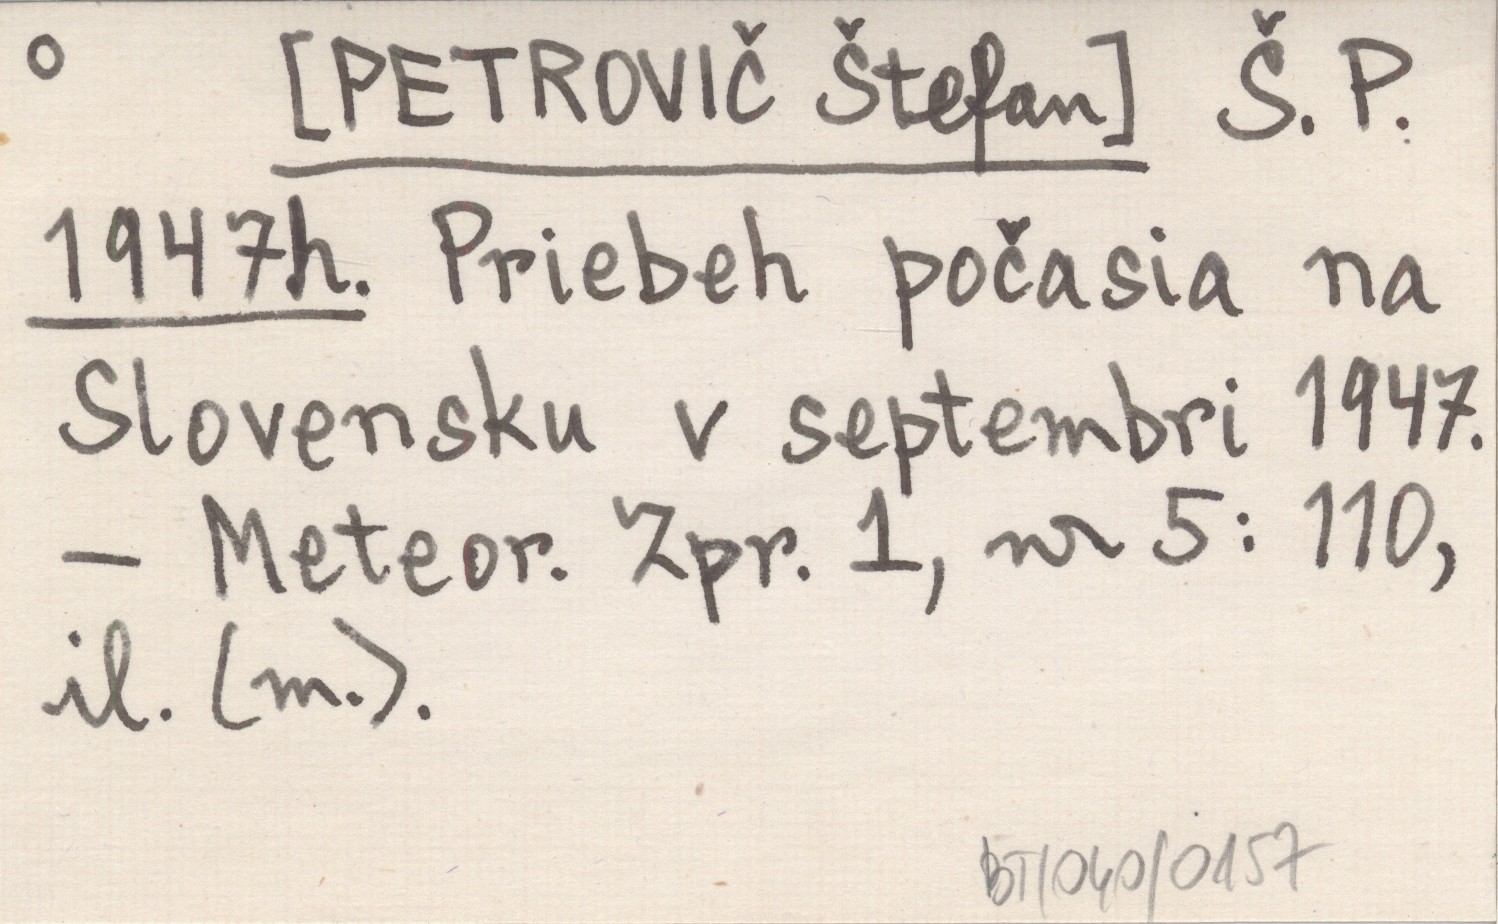 o [PETROVIČ Štefan] Š. P.
1947h. Priebeh počasia na
Slovensku v septembri 1947.
— Meteor. Zpr. 1, nr 5: 110,
il. (m.).
BT/040/0157